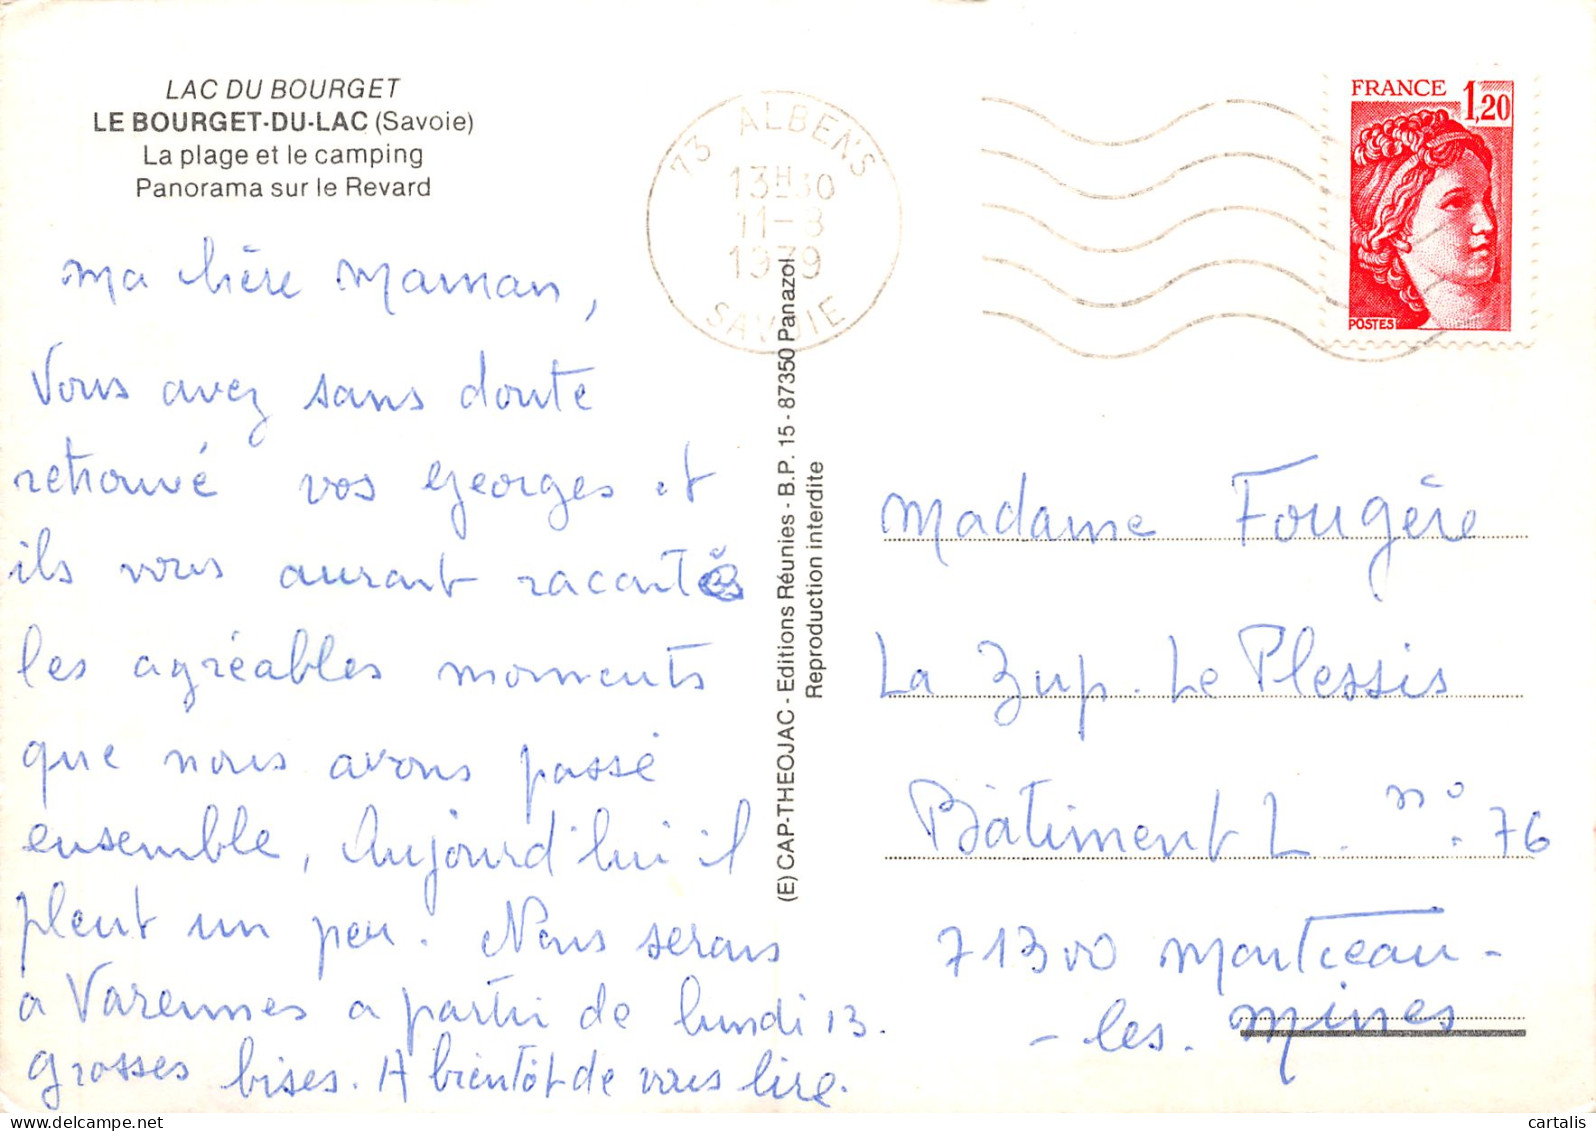 LAC DU BOURGET
LE BOURGET-DU-LAC (Savoie)
La plage et le camping
Panorama sur le Revard
Ma chère Maman,
Vous avez sans doute
retrouvé vos Georges et
ils vous auront raconté
les agréables moments
que nous avons passé
ensemble, Aujourd'hui il
pleut un peu. Nous serons
a Varennes a partir de lundi 13.
grosses bises. A bientôt de vous lire.
73 ALBENS
13H30
11-8
1979
SAVOIE
(E) CAP-THEOJAC - Editions Réunies - B.P. 15 - 87350 Panazol
Reproduction interdite
FRANCE 1,20
POSTES
Madame Fougère
La Zup. Le Plessis
Bâtiment L. n° 76
71300 Montceau-
-les. Mines
cartalis